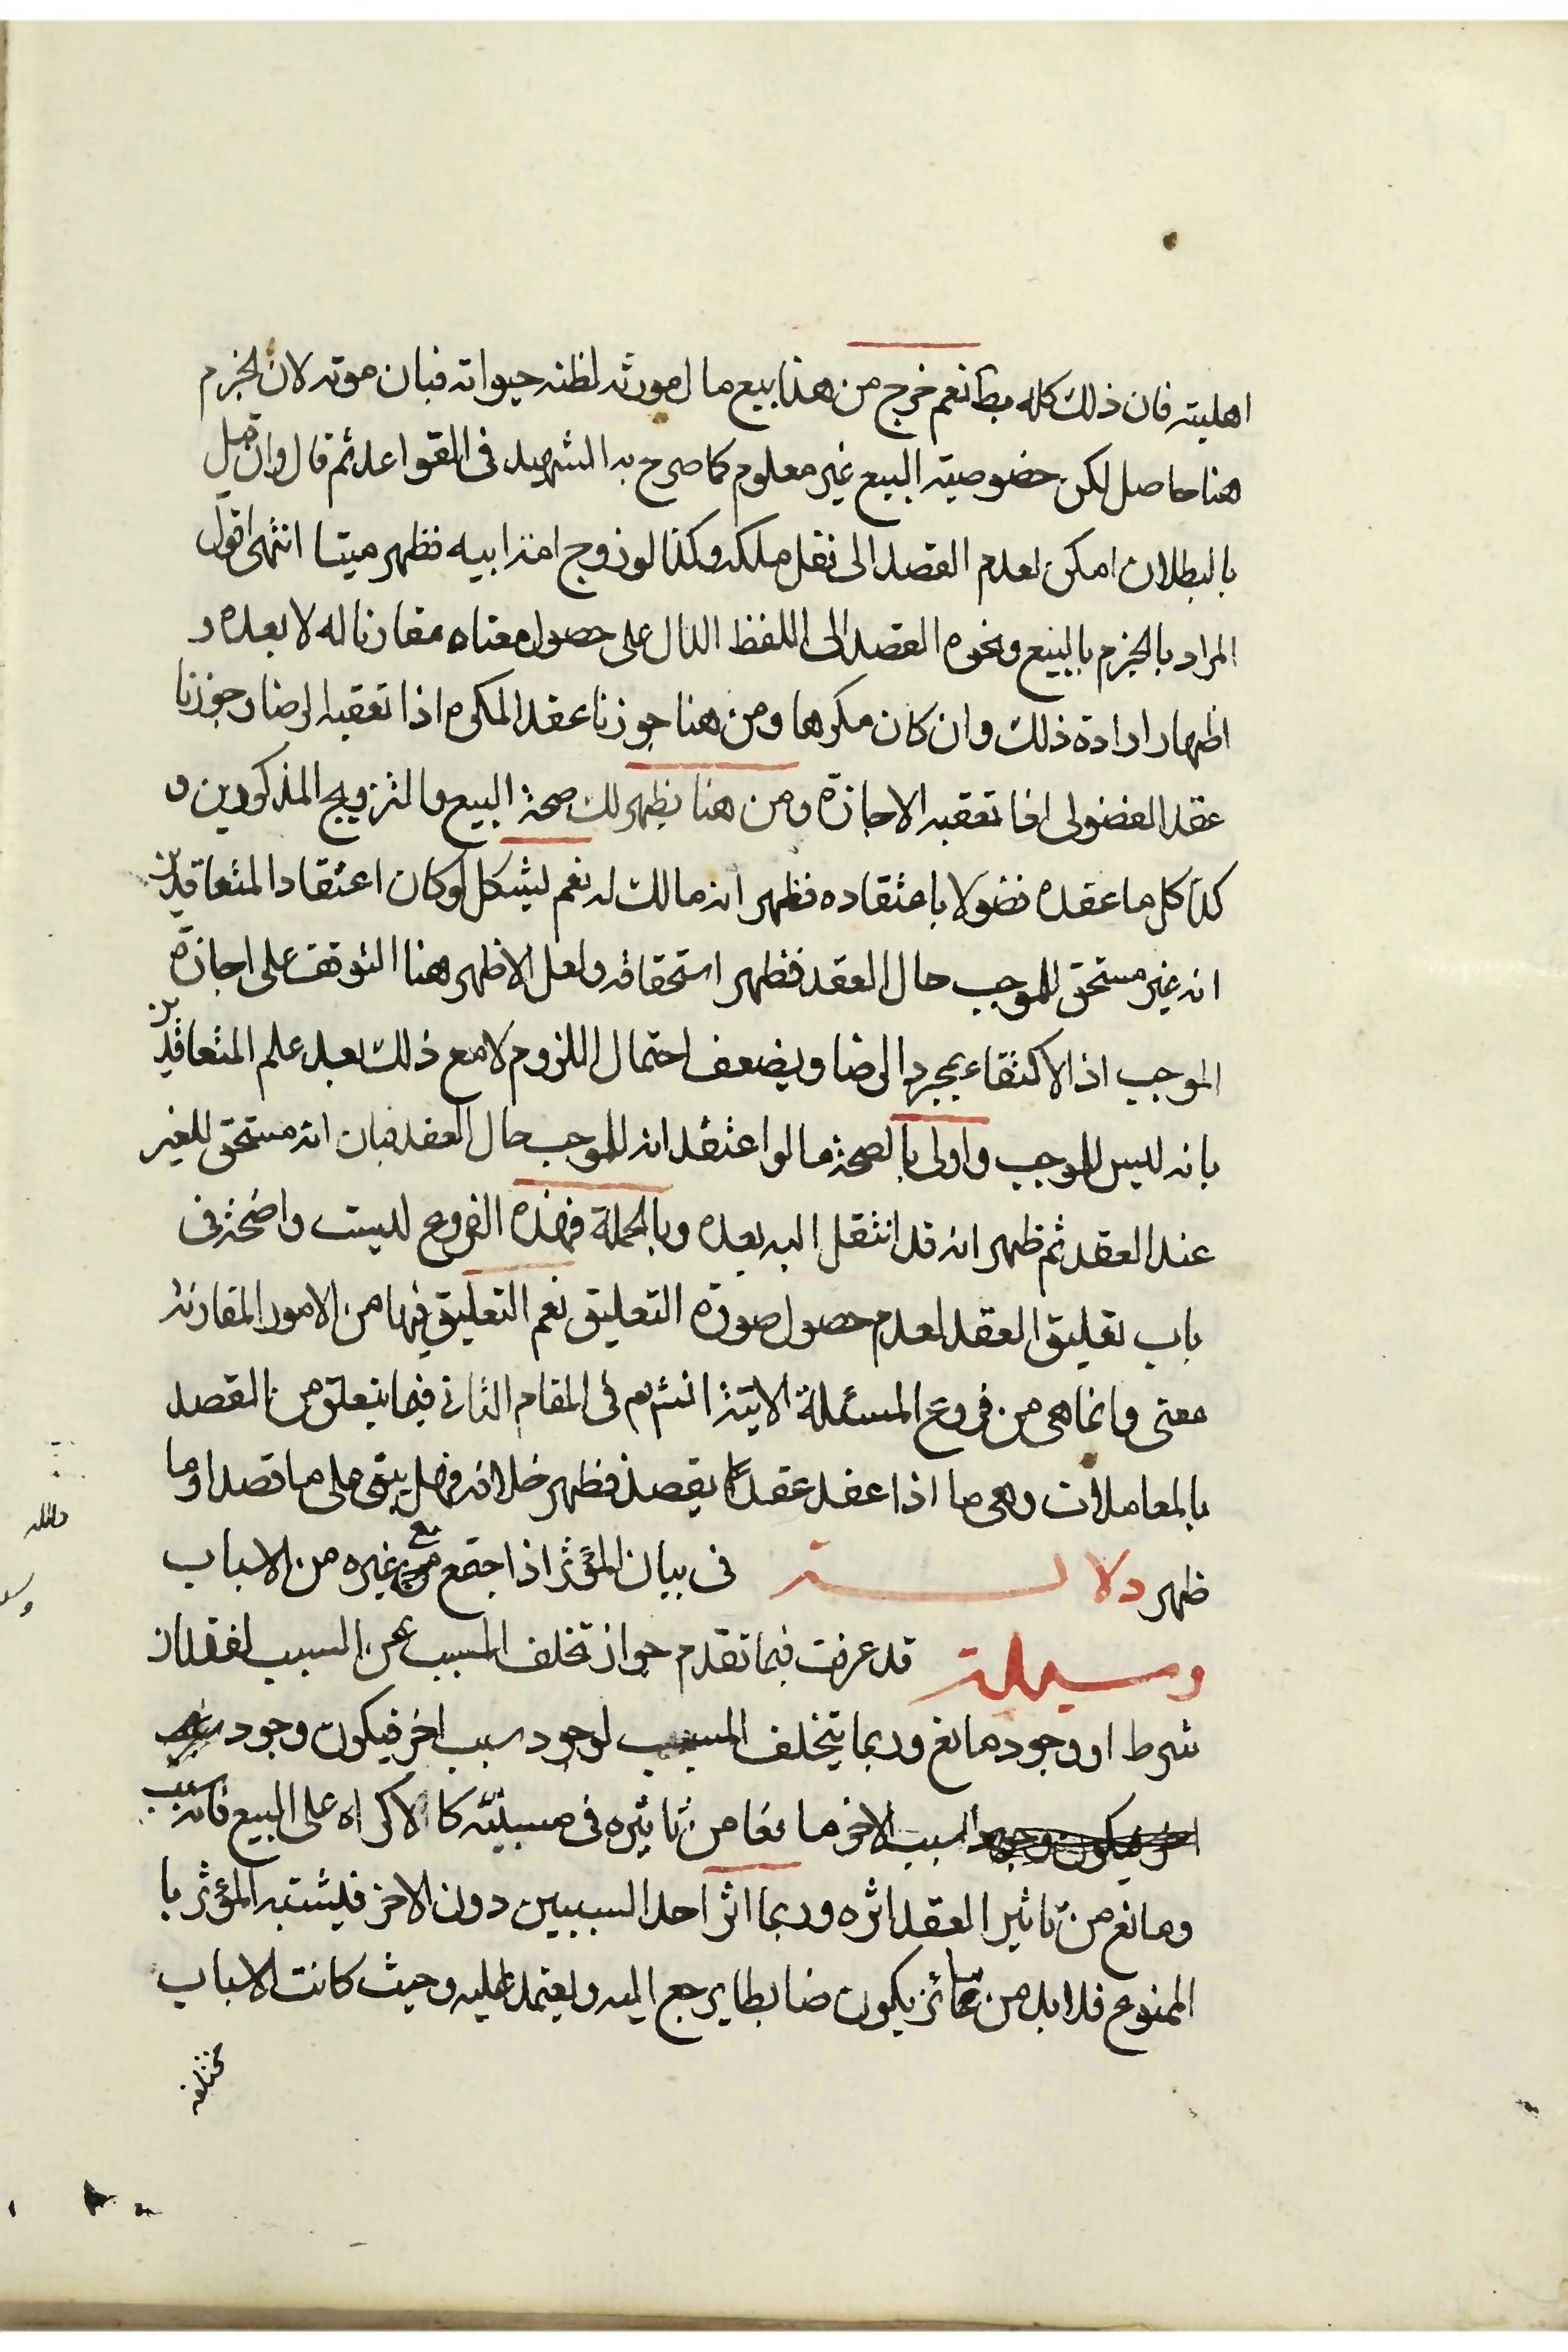 اهليته فان ذلك كله بط نعم خرج من هذا بيع مال مورثه لظنه حيواته فبان موته لان الجزم
هنا حاصل لكن خصوصية البيع غير معلوم كما صرح به الشهيد فى القواعد ثم قال وان قيل
بالبطلان امكن لعدم القصد الى نقل ملكه وكذا لو زوج امة ابيه فظهر ميتا انتهى اقول
المراد بالجزم بالبيع ونحوه القصد الى اللفظ الدال على حصول معناه مقارنا له لا بعده و
اظهار ارادة ذلك وان كان مكرها ومن هنا جوزنا عقد المكره اذا تعقبه الرضا وجوزنا
عقد الفضولى اذا تعقبه الاجازة ومن هنا يظهر لك صحة البيع والتزويج المذكورين و
كذا كل ما عقده فضولا باعتقاده فظهر انه مالك له نعم يشكل لو كان اعتقاد المتعاقدين
انه غير مستحق للموجب حال العقد فظهر استحقاقه ولعل الاظهر هنا التوقف على اجازة
الموجب اذ الاكتفاء بمجرد الرضا ويضعف احتمال اللزوم لا مع ذلك بعد علم المتعاقدين
بانه ليس للموجب واولى بالصحة ما لو اعتقد انه للموجب حال العقد فبان انه مستحق للغير
عند العقد ثم ظهر انه قد انتقل اليه بعده وبالجملة فهذه الفروع ليست واضحة فى
باب تعليق العقد لعدم حصول صورة التعليق نعم التعليق فيها من الامور المقارنة
معنى وانما هى من فروع المسئلة الاتية انشءم فى المقام الثانى فيما يتعلق من القصد
بالمعاملات وهى ما اذا عقد عقدا يقصد فظهر خلافه فهل يبقى على ما قصد او ما
ظهر دلالة فى بيان المؤثر اذا اجتمع مع غيره من الاسباب
وسيلة قد عرفت فيما تقدم جواز تخلف المسبب عن السبب لفقدان
شرط او وجود مانع وربما يتخلف المسبب لوجود سبب اخر فيكون وجود
السبب الاخر مانعا من تاثيره فى مسببه كالاكراه على البيع فانه سبب
ومانع من تاثير العقد اثره وربما اثر احد السببين دون الاخر فيشتبه المؤثر با
الممنوع فلا بد من تمائز يكون ضابطا يرجع اليه ويعتمد عليه وحيث كانت الاسباب
مختلفة